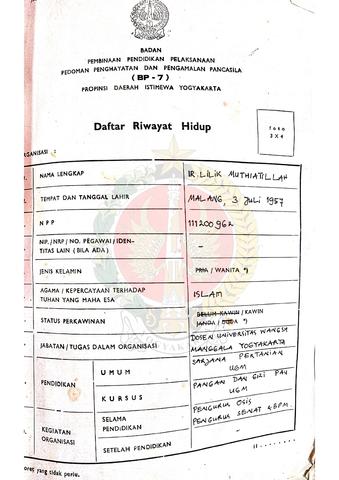 BADAN
PEMBINAAN PENDIDIKAN PELAKSANAAN
PEDOMAN PENGHAYATAN DAN PENGAMALAN PANCASILA
( BP - 7 )
PROPINSI DAERAH ISTIMEWA YOGYAKARTA
Daftar Riwayat Hidup
foto
3 X 4
ORGANISASI :
NAMA LENGKAP IR. LILIK MUTHIATILLAH
TEMPAT DAN TANGGAL LAHIR MALANG, 3 Juli 1957
N P P 111200962
NIP./NRP/NO. PEGAWAI/IDEN-
TITAS LAIN (BILA ADA) –
JENIS KELAMIN PRIA / WANITA *)
AGAMA / KEPERCAYAAN TERHADAP
TUHAN YANG MAHA ESA ISLAM
STATUS PERKAWINAN BELUM KAWIN / KAWIN
JANDA / DUDA *)
JABATAN/TUGAS DALAM ORGANISASI DOSEN UNIVERSITAS WANGSA
MANGGALA YOGYAKARTA
PENDIDIKAN U M U M SARJANA PERTANIAN
UGM
K U R S U S PANGAN DAN GIZI PAU
UGM
KEGIATAN
ORGANISASI SELAMA
PENDIDIKAN PENGURUS OSIS
PENGURUS SENAT & BPM.
SETELAH PENDIDIKAN
oret yang tidak perlu.